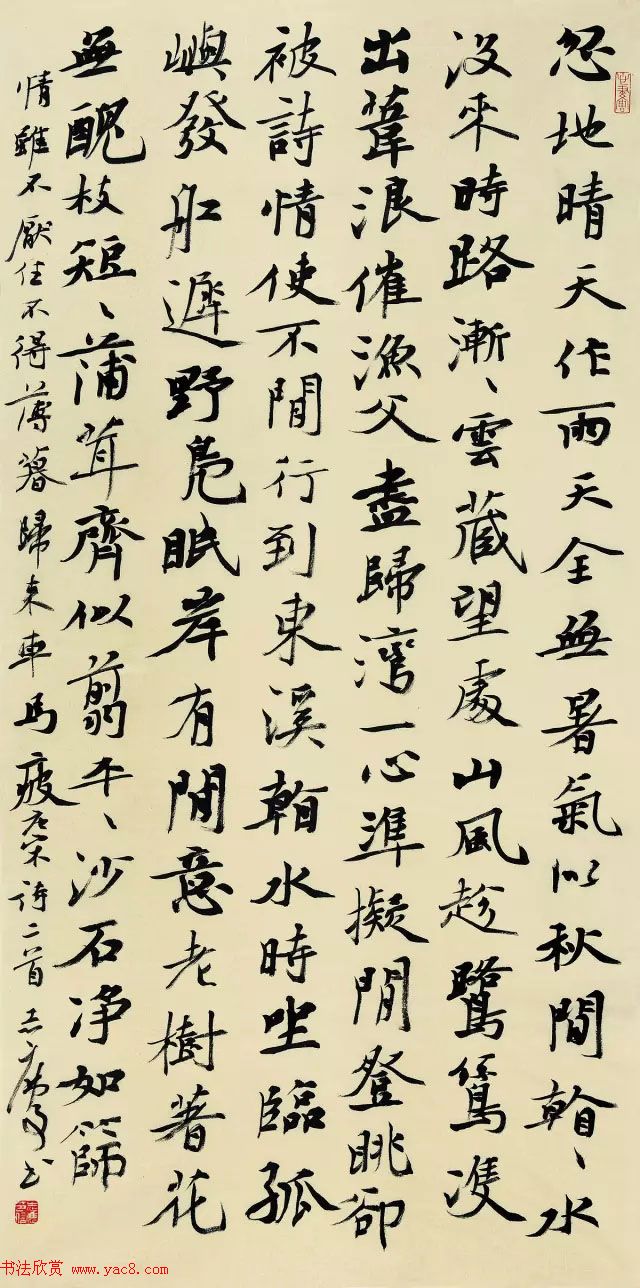 忽地晴天作雨天全無暑氣似秋間看〻水
沒來時路漸〻雲藏望處山風趁鷺鷥雙
出葦浪催漁父盡歸灣一心準擬閒登眺卻
被詩情使不閒行到東溪看水時坐臨孤
嶼發船遲野鳧眠岸有閒意老樹著花
無醜枝短〻蒲茸齊似翦平〻沙石净如篩
情雖不厭住不得薄暮歸來車馬疲唐宋詩二首 書
书法欣赏 www.yac8.com